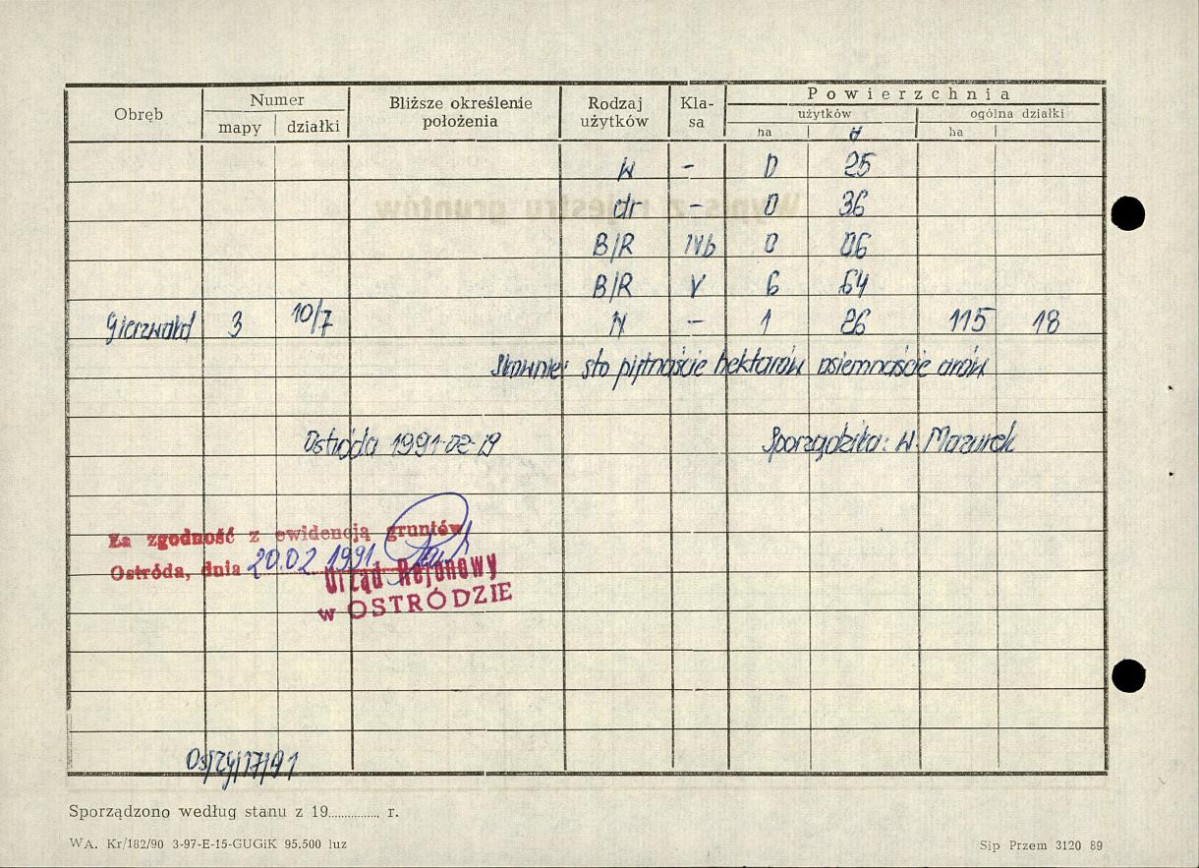 Obręb Numer Bliższe określenie położenia Rodzaj użytków Kla-sa Powierzchnia
mapy działki użytków ogólna działki
ha a ha
W - 0 25
dr - 0 36
B/R IVb 0 06
B/R V 6 64
Gierzwałd 3 10/7 N - 1 26 115 18
Słownie: sto piętnaście hektarów osiemnaście arów
Ostróda 1991-02-19 Sporządziła: W. Mazurek
Za zgodność z ewidencją gruntów
Ostróda, dnia 20.02 1991
Urząd Rejonowy
w OSTRÓDZIE
Sporządzono według stanu z 19............... r.
WA. Kr/182/90 3-97-E-15-GUGiK 95.500 luz Sip Przem 3120 89